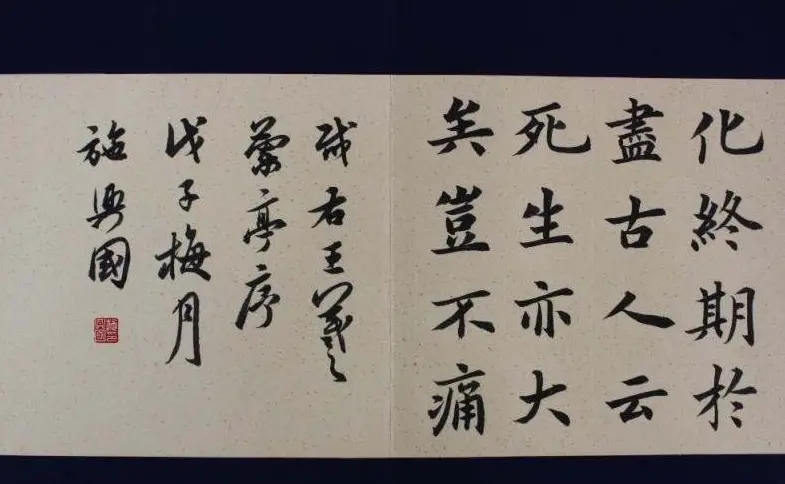 化終期於
盡古人云
死生亦大
矣豈不痛
哉右王羲之
蘭亭序
戊子梅月
施興國